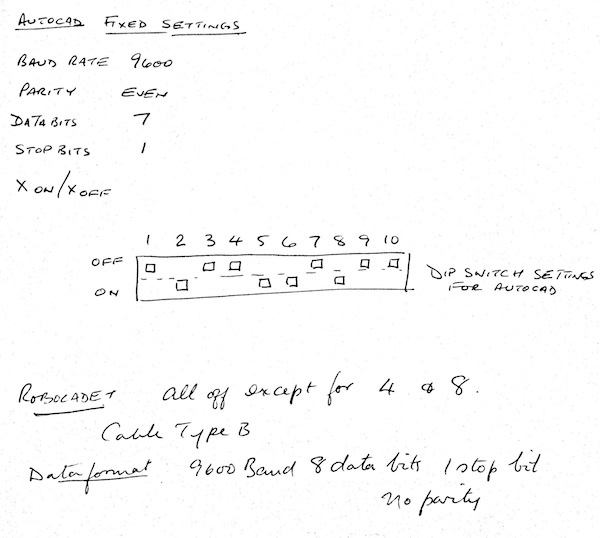 AUTOCAD FIXED SETTINGS
BAUD RATE 9600
PARITY EVEN
DATA BITS 7
STOP BITS 1
X ON/X OFF
1 2 3 4 5 6 7 8 9 10
OFF
ON
DIP SWITCH SETTINGS
FOR AUTOCAD
ROBOCADET all off except for 4 & 8.
Cable Type B
Data format 9600 Baud 8 data bits 1 stop bit
No parity